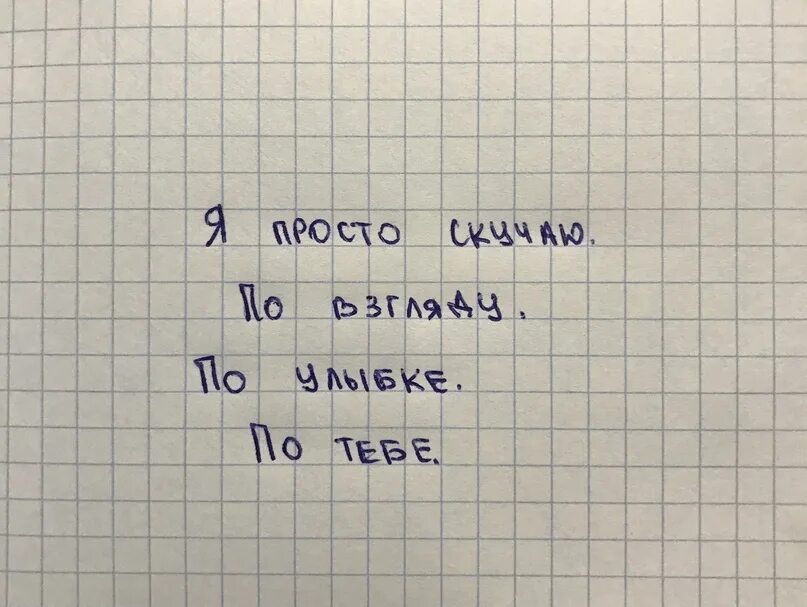 Я просто скучаю.
По взгляду.
По улыбке.
По тебе.